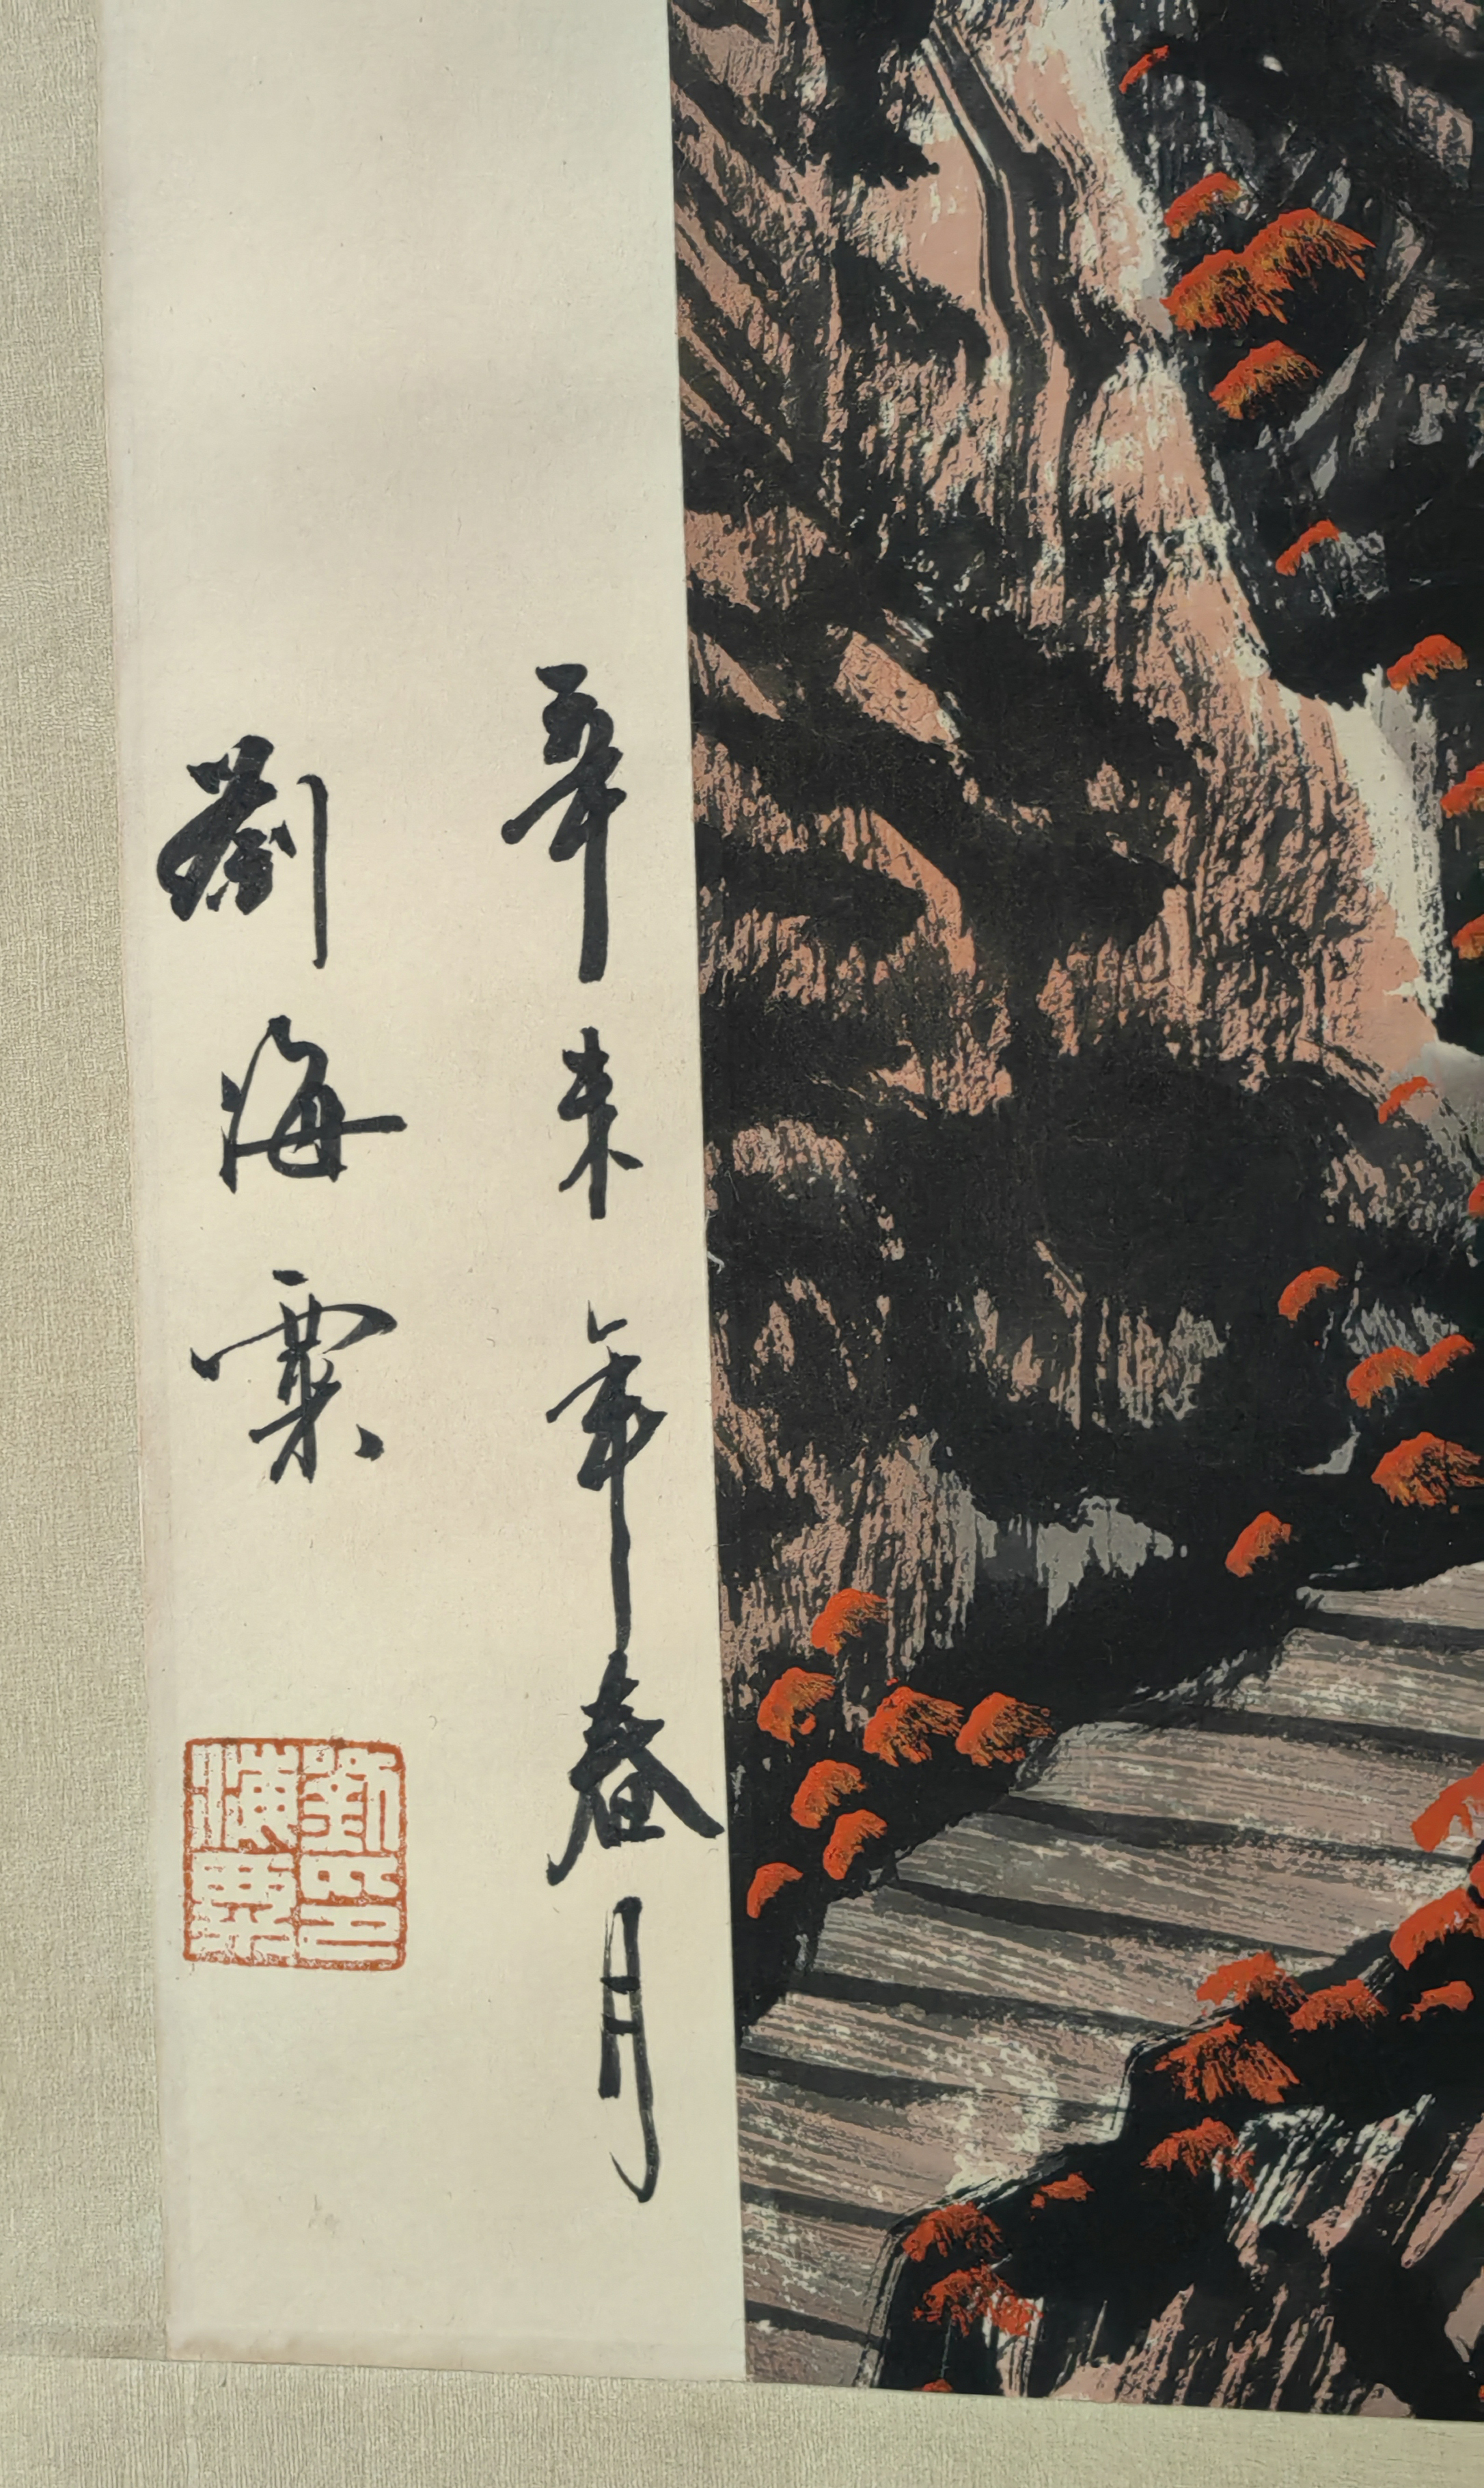 辛未年春月
劉海粟
劉海粟印